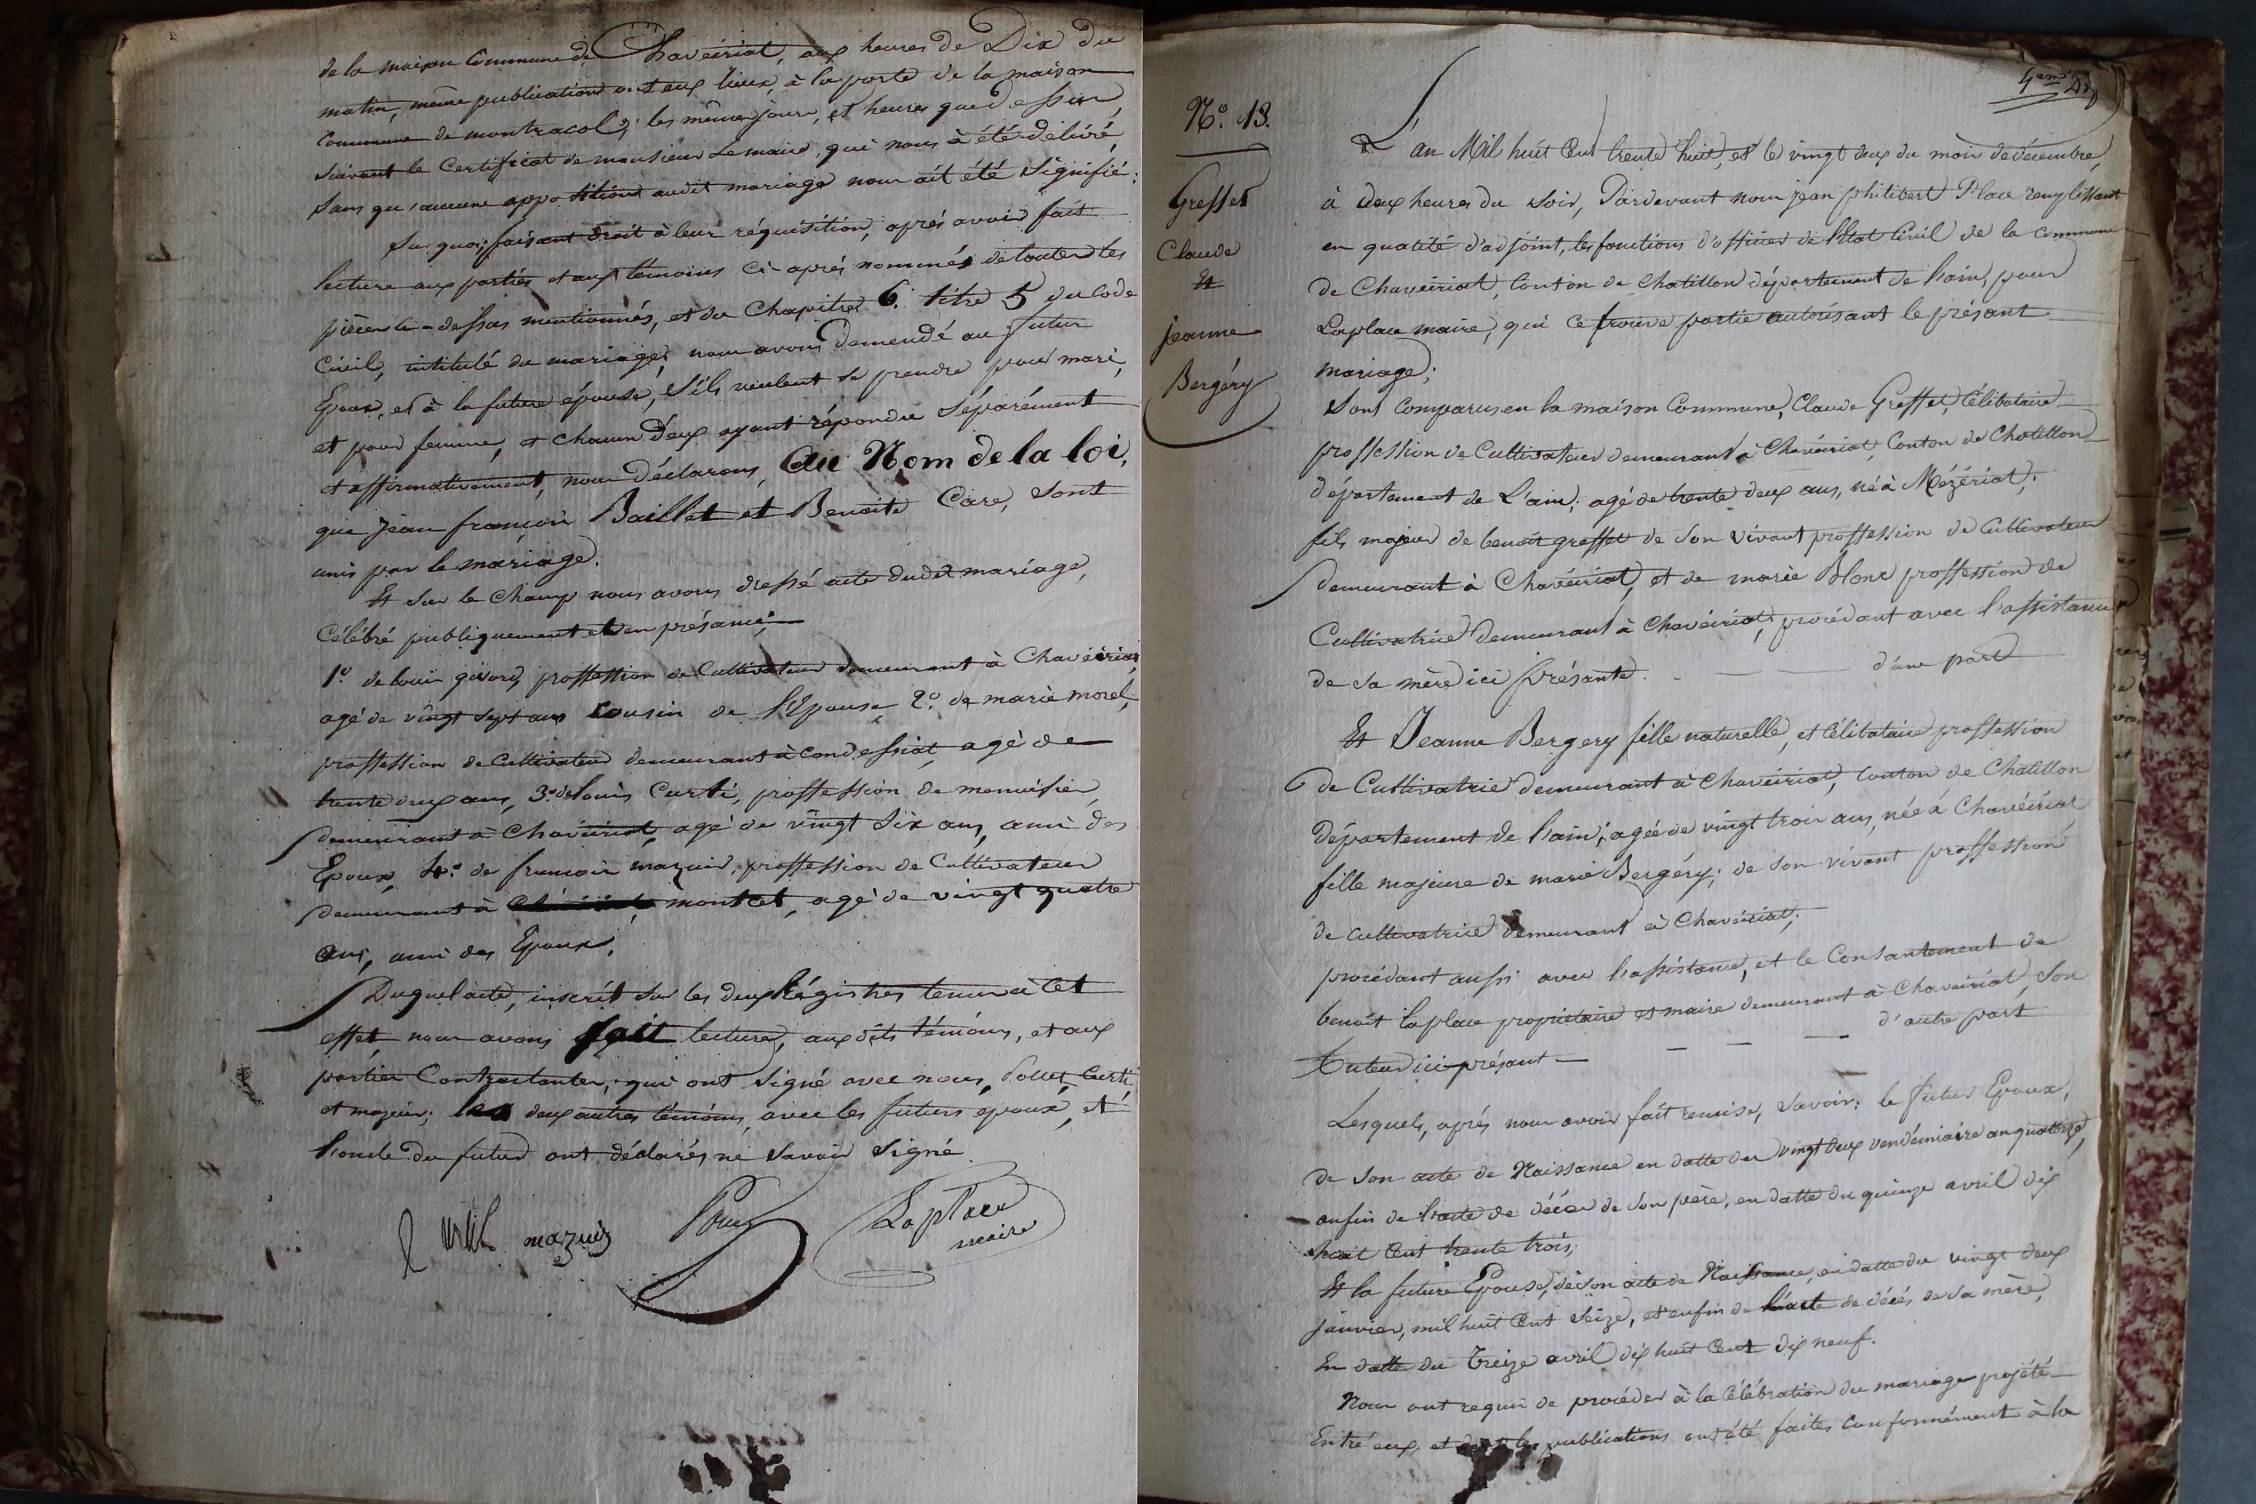 de la maison Commune de Chaveiriat, aux heures de Dix du
matin, même publication ont eux lieux, à la porte de la maison
Commune de montracol, les même jours, et heures que dessus
suivant le Certificat de monsieur Lemaire, qui nous à été délivré,
sans qu'aucune oppoSition audit mariage nour ait été Signifié;
Sur quoi, faisant droit à leur réquisition, après avoir fait
lecture aux parties et aux témoins Ci-après nommés de toutes les
pièces Ci-dessus mentionnés, et du Chapitre 6. titre 5 du Code
Civil, intitulé du mariage, nour avons demendé au futur
Epoux, et à la future épouse, S'ils veulent se prendre pour mari,
et pour femme, et chacun d'eux ayant répondu Séparément
et affirmativement, nour Déclarons, au Nom de la loi,
que Jean françois Baillet et Benoite Care, sont
unis par le mariage.
Et sur le Champ nous avons dressé acte dudit mariage,
Célébré publiquement et en présance,
1.º de louis givord, proffession de Cultivateur demeurant à Chaveiriat
agé de vingt Sept ans cousin de l'Epouse, 2.º de marie morel,
proffession de Cultivateur demeurant à Condessiat, agé de
trente deux ans, 3.º de louis Curti, proffession de menuisier,
demeurant à Chavéiriat, agé de vingt Six ans, ami des
Epoux, 4.º de francois mazuir, proffession de Cultivateur
demeurant à montcet, agé de vingt quatre
ans, ami des Epoux;
Duquel acte, inscrit sur les deux Régistres tenus à cet
effet, nour avons fait lecture, aux dits témoins, et aux
parties Contractantes; qui ont Signé avec nous, Curti
et mazuir; les deux autres témoins, avec les futurs époux, et
l'oncle du futur ont déclarés ne Savoir Signé.
mazuir
Laplace
maire
N.º 13.
L'an Mil huit Cent trente huit, et le vingt deux du mois de décembre,
à deux heures du soir, Pardevant nour jean philibert Place remplissant
Greffet
en qualité d'adjoint, les fonctions d'officier de l'Etat Civil de la Commune
Claude
de Chaveiriat, Conton de Chatillon département de l'ain, pour
Et
Laplace maire, qui ce trouve partie autorisant le présant
jeanne
mariage;
Bergéry
Sont Comparus en la maison Commune, Claude Greffet, Célibataire
proffession de Cultivateur demeurant à Chavéiriat, Conton de Chatillon
département de L'ain; agé de trente deux ans, né à Mézériat;
fils majeur de benoit greffet de son vivant proffession de Cultivateur
demeurant à Chavéiriat, et de marie Blonc proffession de
Cultivatrice demeurant à Chaveiriat, procédant avec l'assistance
de sa mère ici présante. d'une part
Et Jeanne Bergery fille naturelle, et Célibataire proffession
de Cultivatrice demeurant à Chaveiriat, Conton de Chatillon
département de l'ain; agée de vingt trois ans, née à Chavéiriat
fille majeure de marie Bergéry; de son vivant proffession
de cultivatrice demeurant à Chaveiriat;
procédant aussi avec l'assistance, et le Consantement de
benoit laplace propriétaire et maire demeurant à Chaveiriat, son
tuteur ici présant d'autre part
Lesquels, après nour avoir fait remise, Savoir: le futur Epoux,
de son acte de Naissance en datte du vingt deux vendémiaire an quatorze,
enfin de l'acte de décès de son père, en datte du quinze avril dix
huit Cent trente trois;
Et la future Epouse, de son acte de Naissance, en datte du vingt deux
janvier, mil huit Cent Seize, et enfin de l'acte de décés de sa mère,
En datte du treize avril dix huit Cent dix neuf.
Nour ont requis de procéder à la Célébration du mariage projété
Entre eux, et dont les publications ont été faites conformément à la